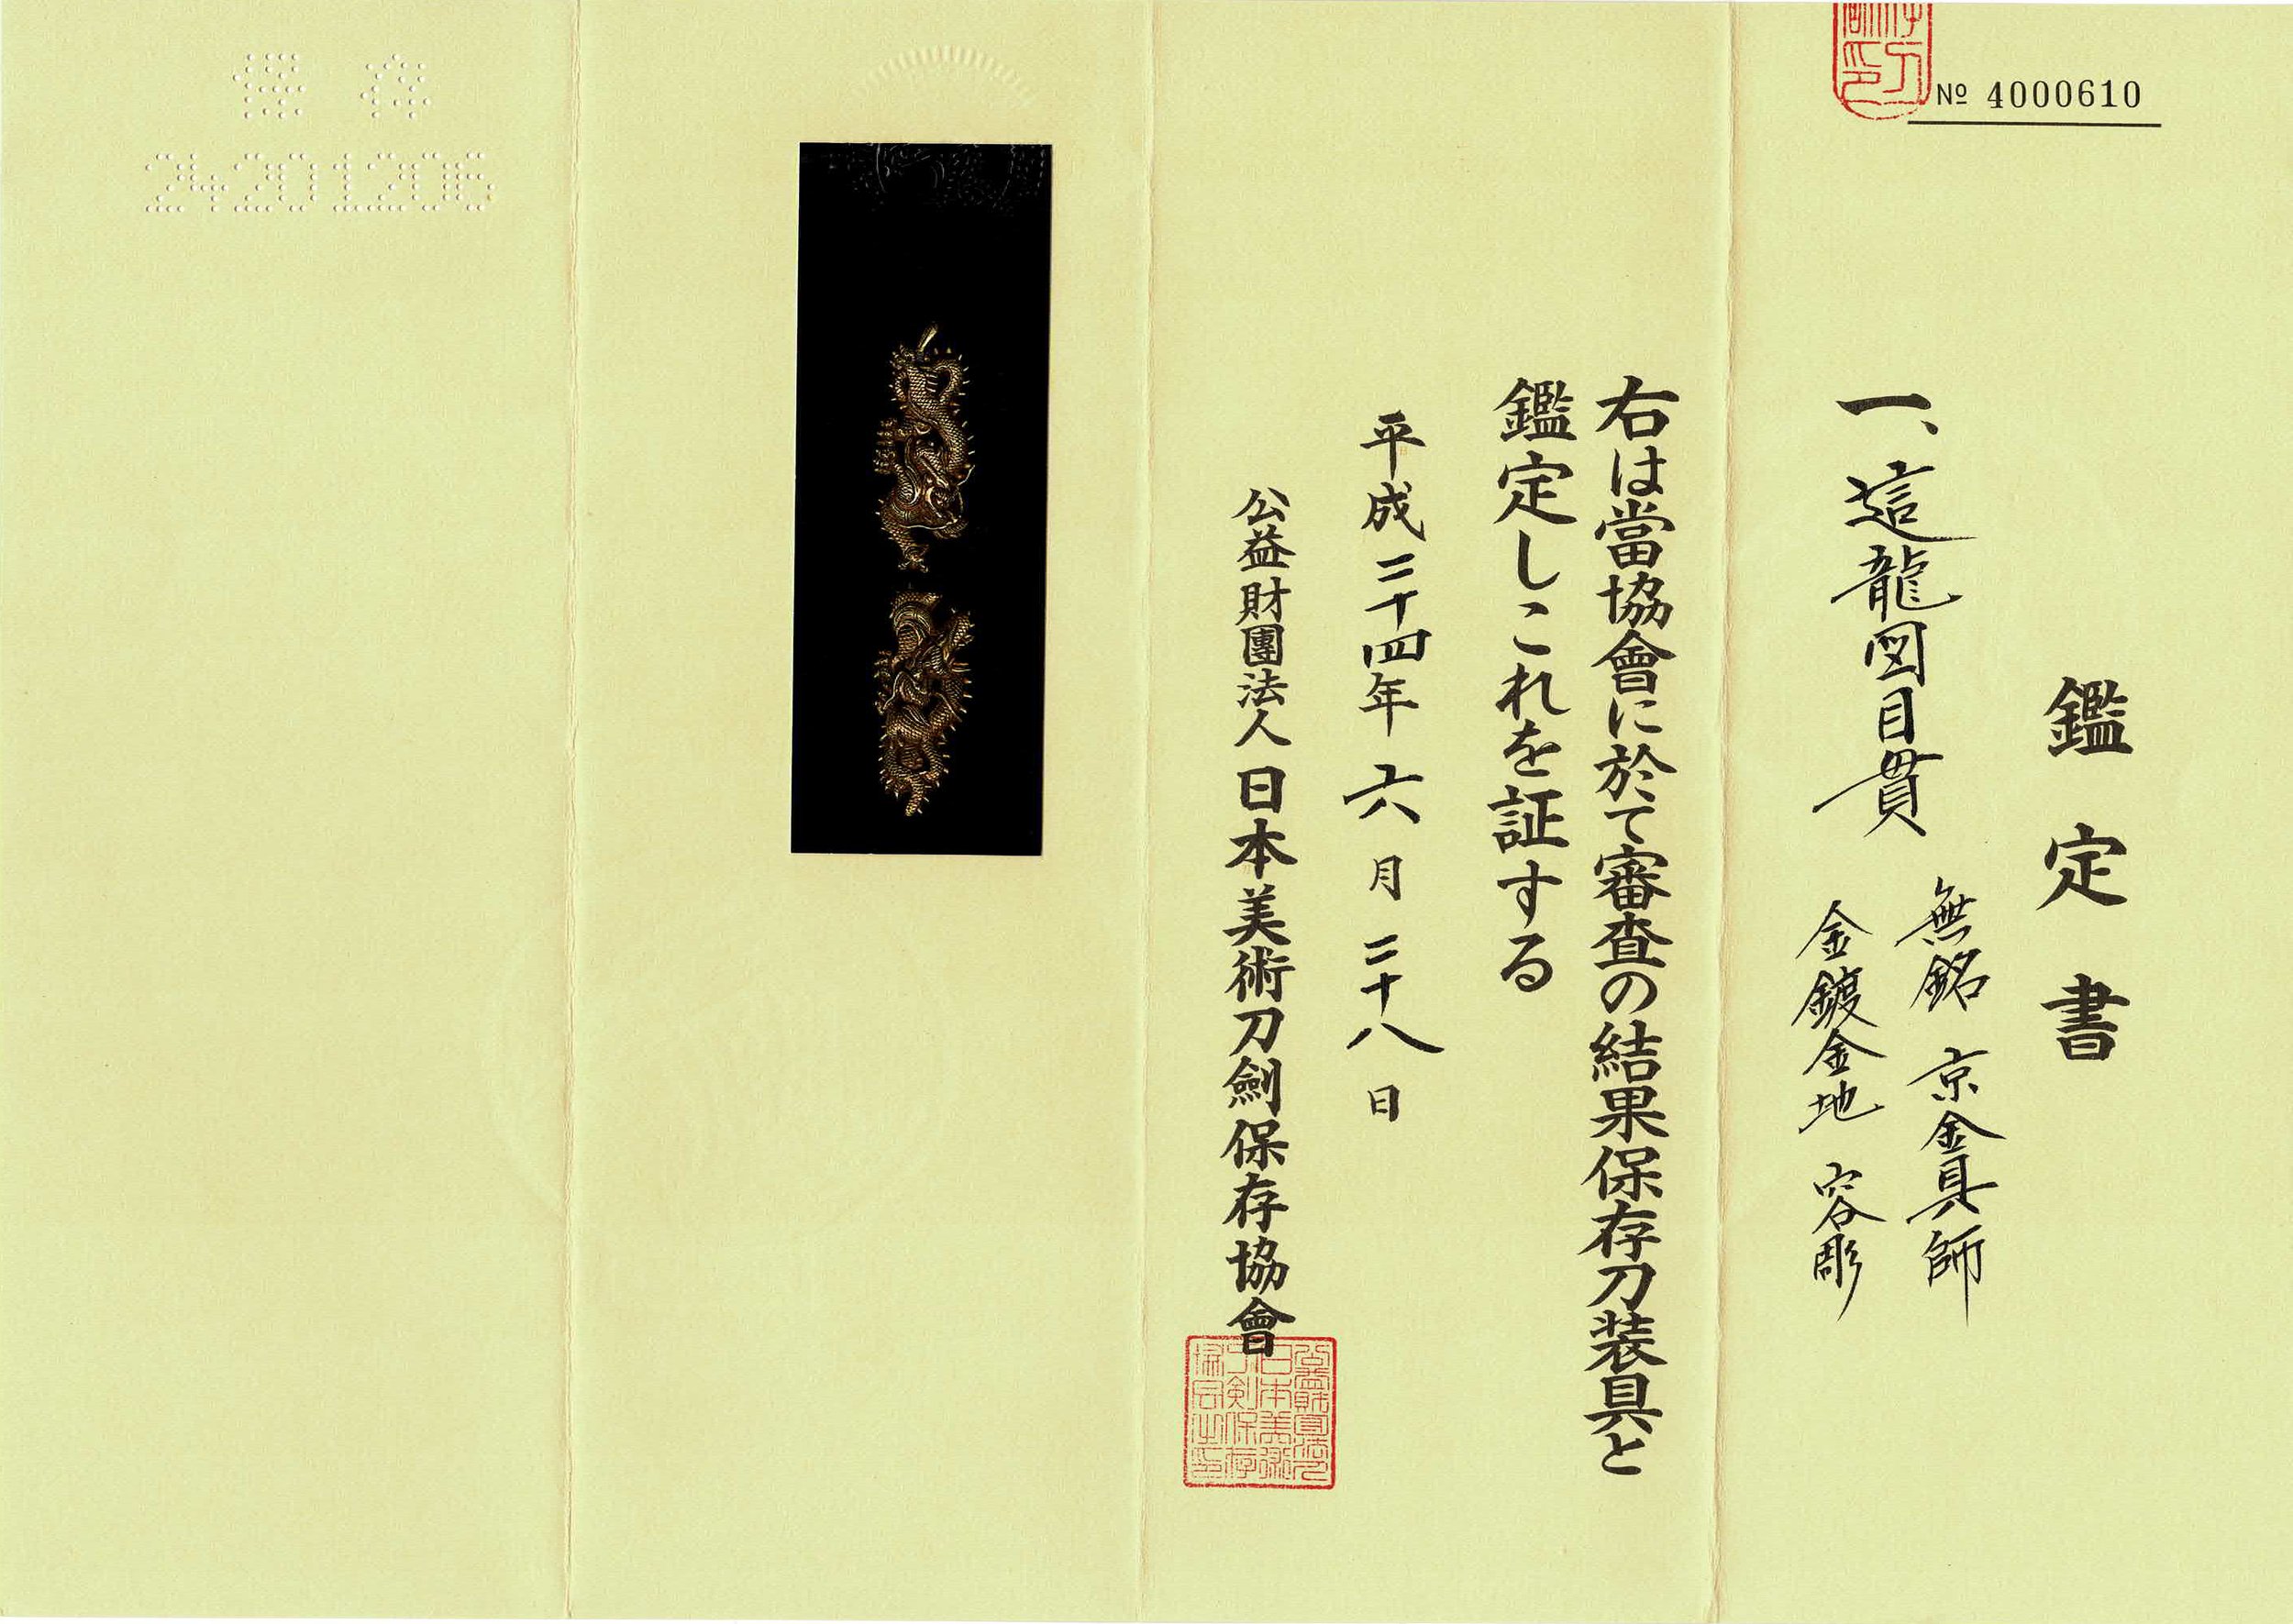 № 4000610
鑑定書
一、這龍図目貫
無銘 京金具師
金鍍金地 容彫
右は當協會に於て審査の結果保存刀装具と
鑑定しこれを証する
平成二十四年六月二十八日
公益財團法人日本美術刀劍保存協會
保存
24201206